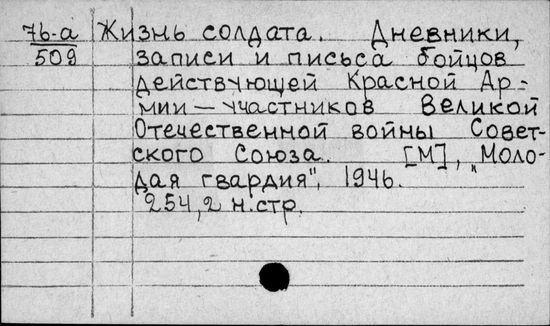 76-а Жизнь солдата. Дневники,
509 записи и письса бойцов
действующей Красной Ар-
мии — участников Великой
Отечественной войны Совет-
ского Союза. [М], „Моло-
дая гвардия", 1946.
254, 2 н.стр.